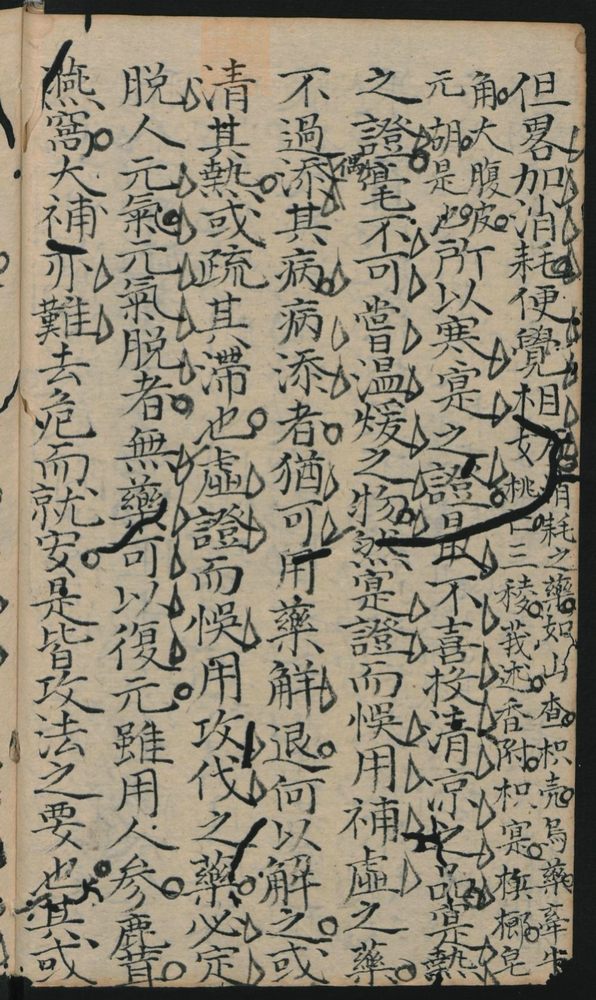 但畧加消耗便覺相消耗之藥如山查枳壳烏藥牽牛桃仁三稜莪述香附枳寔檳榔皂
角大腹皮元胡是也所以寒寔之證最不喜投清凉之品寔熱
之證毫不可嘗温煖之物然寔證而悮用補虛之藥
偶
不過添其病病添者猶可用藥解退何以解之或
清其熱或疏其滯也虛證而悮用攻伐之藥必定
脱人元氣元氣脱者無藥可以復元雖用人参鹿茸
燕窩大補亦難去危而就安是皆攻法之要也其或